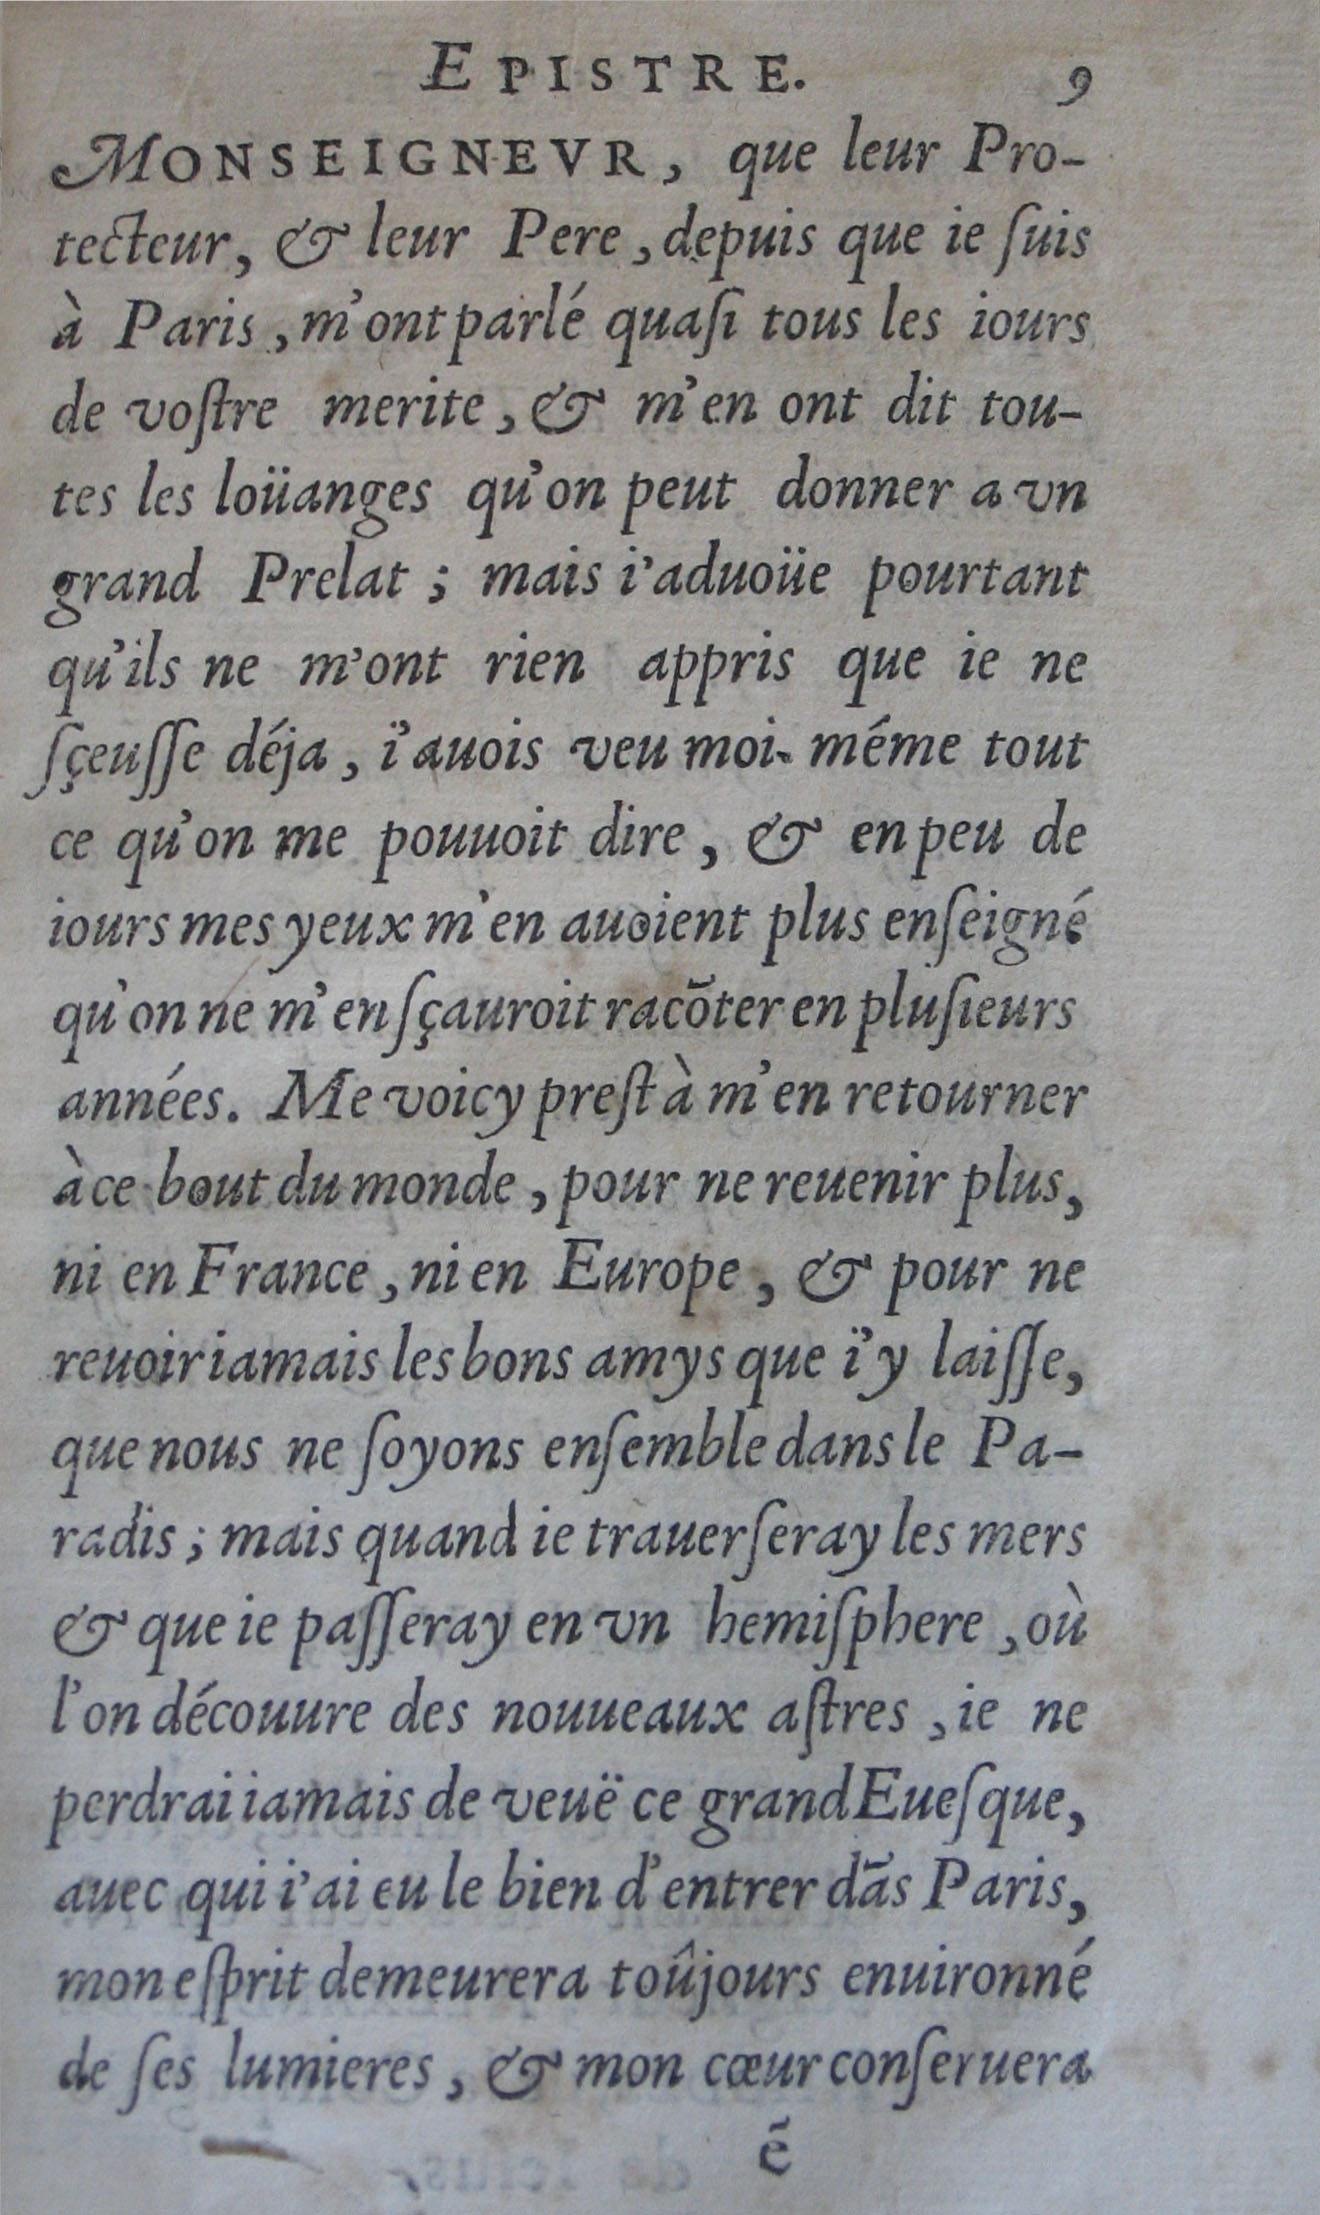 EPISTRE. 9
MONSEIGNEVR, que leur Pro-
tecteur, & leur Pere, depuis que ie ſuis
à Paris, m'ont parlé quaſi tous les iours
de voſtre merite, & m'en ont dit tou-
tes les loüanges qu'on peut donner a vn
grand Prelat; mais i'aduoüe pourtant
qu'ils ne m'ont rien appris que ie ne
ſçeuſſe déja, i'auois veu moi-méme tout
ce qu'on me pouuoit dire, & en peu de
iours mes yeux m'en auoient plus enſeigné
qu'on ne m'en ſçauroit racõter en pluſieurs
années. Me voicy preſt à m'en retourner
à ce bout du monde, pour ne reuenir plus,
ni en France, ni en Europe, & pour ne
reuoir iamais les bons amys que i'y laiſſe,
que nous ne ſoyons enſemble dans le Pa-
radis; mais quand ie trauerſeray les mers
& que ie paſſeray en vn hemiſphere, où
l'on découure des nouueaux aſtres, ie ne
perdrai iamais de veuë ce grand Eueſque,
auec qui i'ai eu le bien d'entrer dãs Paris,
mon eſprit demeurera toûjours enuironné
de ſes lumieres, & mon cœur conſeruera
ẽ